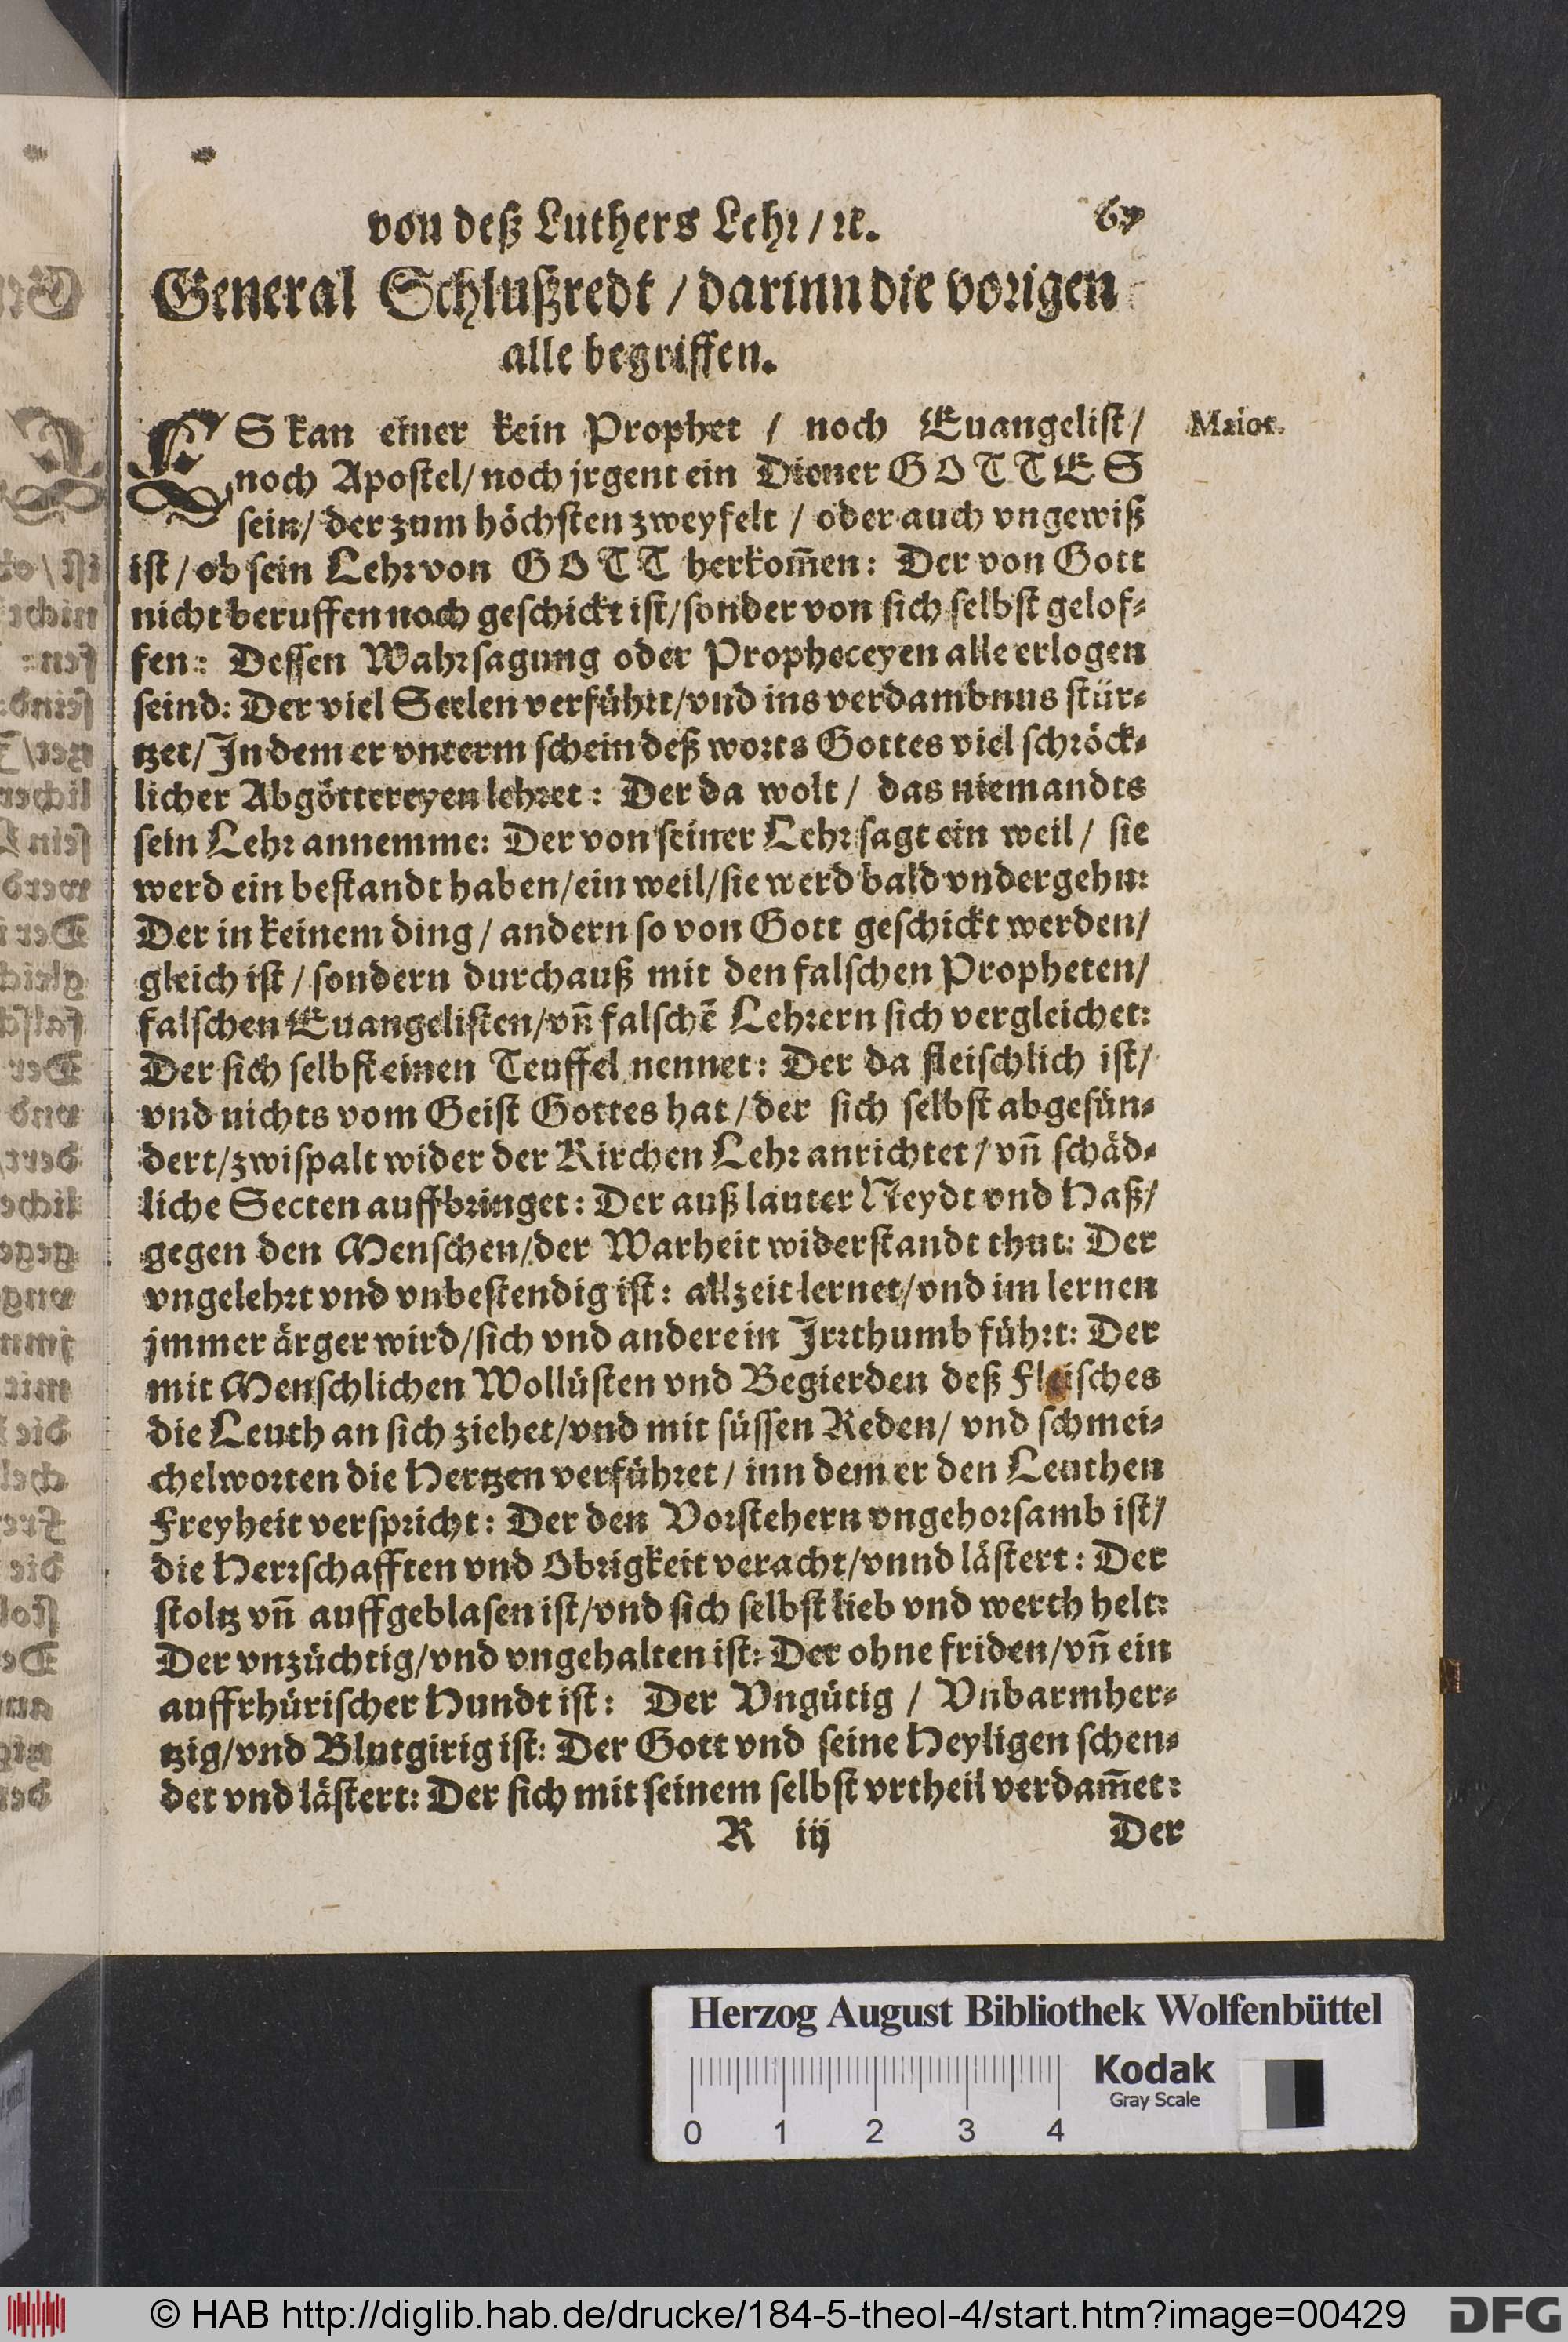 von deß Luthers Lehr / ꝛc. 67
General Schlußredt / darinn die vorigen
alle begriffen.
ES kan einer kein Prophet / noch Euangelist/
Maior.
noch Apostel/ noch jrgent ein Diener GOTTES
sein/ der zum höchsten zweyfelt / oder auch vngewiß
ist / ob sein Lehr von GOTT herkom̃en: Der von Gott
nicht beruffen noch geschickt ist/ sonder von sich selbst gelof-
fen: Dessen Wahrsagung oder Propheceyen alle erlogen
seind: Der viel Seelen verführt/vnd ins verdambnus stür-
tzet/ In dem er vnterm schein deß worts Gottes viel schröck-
licher Abgöttereyen lehret: Der da wolt / das niemandts
sein Lehr annemme: Der von seiner Lehr sagt ein weil / sie
werd ein bestandt haben/ein weil/sie werd bald vndergehn:
Der in keinem ding / andern so von Gott geschickt werden/
gleich ist / sondern durchauß mit den falschen Propheten/
falschen Euangelisten/vñ falschẽ Lehrern sich vergleichet:
Der sich selbst einen Teuffel nennet: Der da fleischlich ist/
vnd nichts vom Geist Gottes hat / der sich selbst abgesün-
dert/zwispalt wider der Kirchen Lehr anrichtet / vñ schäd-
liche Secten auffbringet: Der auß lauter Neydt vnd Haß/
gegen den Menschen/der Warheit widerstandt thut: Der
vngelehrt vnd vnbestendig ist: allzeit lernet/vnd im lernen
jmmer ärger wird/sich vnd andere in Irrthumb führt: Der
mit Menschlichen Wollüsten vnd Begierden deß Fleisches
die Leuth an sich ziehet/vnd mit süssen Reden/ vnd schmei-
chelworten die Hertzen verführet / inn dem er den Leuthen
Freyheit verspricht: Der den Vorstehern vngehorsamb ist/
die Herrschafften vnd Obrigkeit veracht/vnnd lästert: Der
stoltz vñ auffgeblasen ist/vnd sich selbst lieb vnd werth helt:
Der vnzüchtig/vnd vngehalten ist: Der ohne friden/vñ ein
auffrhürischer Hundt ist: Der Vngütig / Vnbarmher-
tzig/vnd Blutgirig ist: Der Gott vnd seine Heyligen schen-
det vnd lästert: Der sich mit seinem selbst vrtheil verdam̃et:
R iij Der
Herzog August Bibliothek Wolfenbüttel
Kodak
Gray Scale
0 1 2 3 4
© HAB http://diglib.hab.de/drucke/184-5-theol-4/start.htm?image=00429 DFG